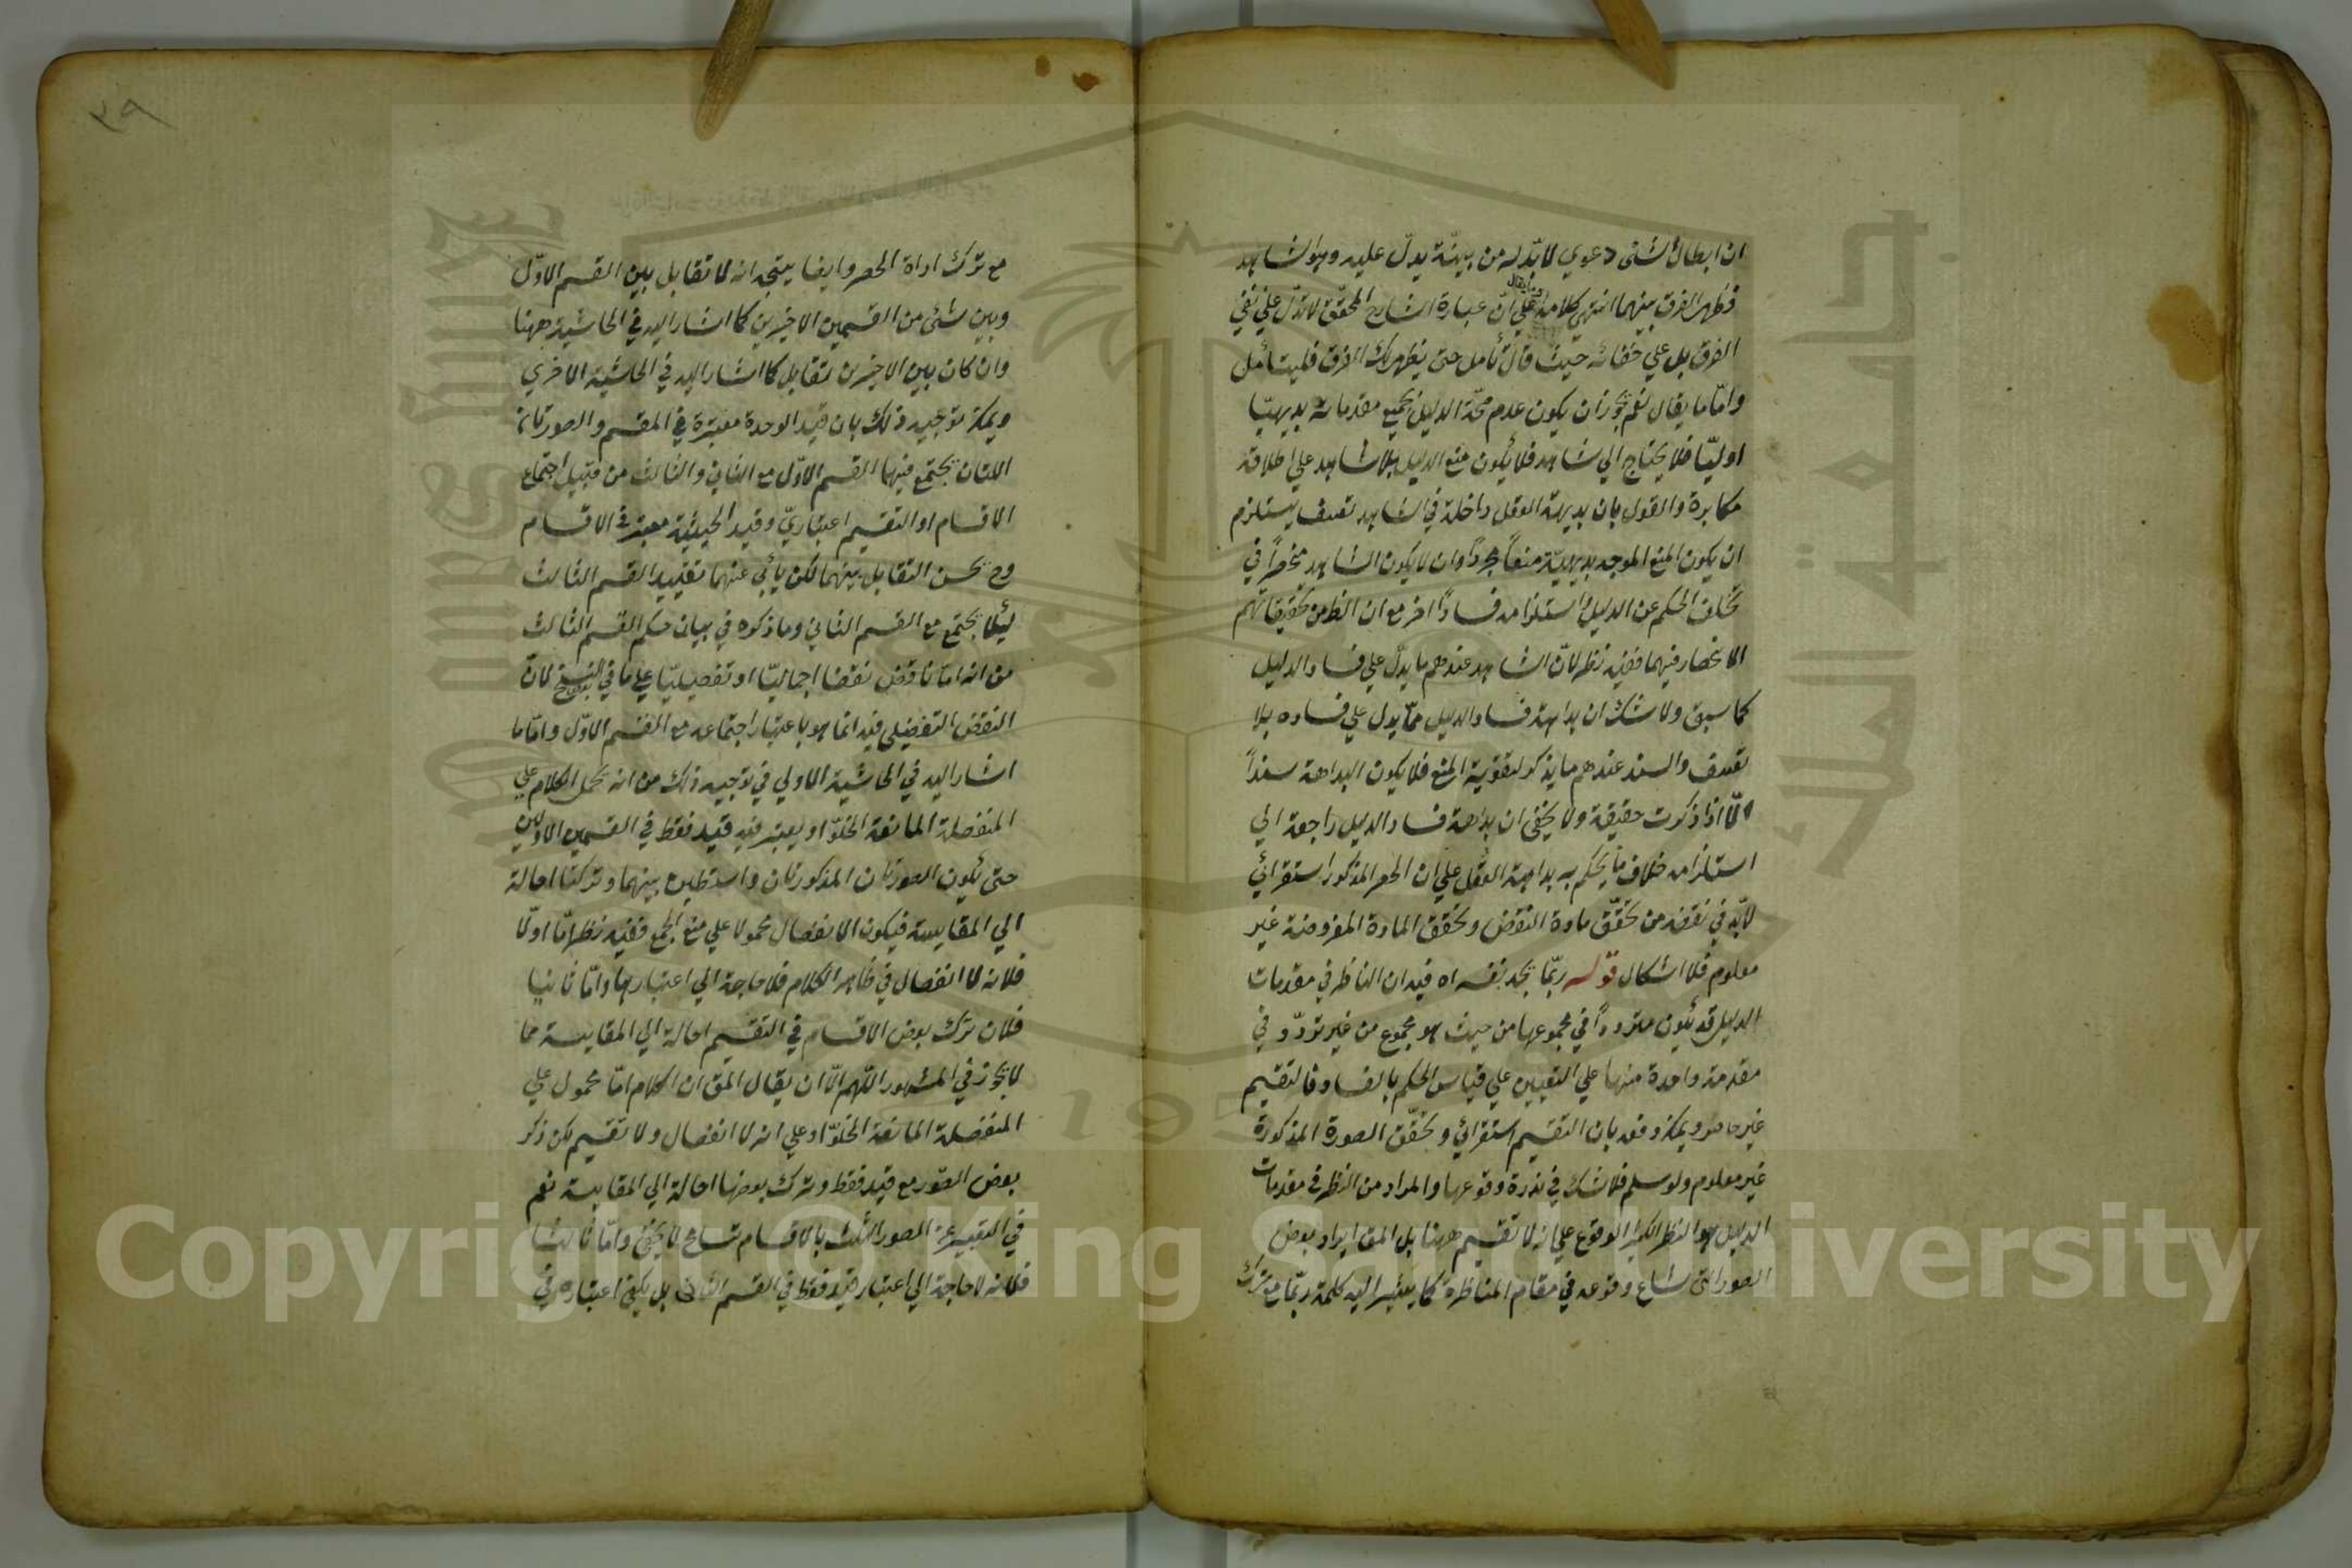 ان ابطال شئ دعوي لا بدّ له من بينة يدلّ عليه وهو الشاهد
فظهر الفرق بينهما انتهي كلامه علي انّ عبارة الشارح المحقّق لا تدلّ علي نفي
الفرق بل علي خفائه حيث قال تأمل حتى يظهر لك الفرق فليتأمل
وامّا ما يقال نعم يجوز ان يكون عدم صحّة الدليل بجميع مقدماته بديهيّا
اوليّا فلا يحتاج الي شاهد فلا يكون منع الدليل بلا شاهد علي اطلاقه
مكابرة والقول بان بديهة العقل داخلة في الشاهد تعسف يستلزم
ان يكون المنع الموجه بديهيّة منعاً مجرداً وان لا يكون الشاهد منحصراً في
تخلف الحكم عن الدليل واستلزامه فساداً اخر مع ان الظ من تحقيقاتهم
الانحصار فيهما ففيه نظر لانّ الشاهد عندهم ما يدلّ علي فساد الدليل
كما سبق ولا شك ان بداهة فساد الدليل ممّا يدل علي فساده بلا
تعسف والسند عندهم ما يذكر لتقوية المنع فلا يكون البداهة سنداً
الّا اذا ذكرت حقيقة ولا يخفى ان بداهة فساد الدليل راجعة الي
استلزامه خلاف ما يحكم به بداهة العقل علي ان الحصر المذكور استقرائي
لا بدّ في نقضه من تحقّق مادة النقض وتحقق المادة المفروضة غير
معلوم فلا اشكال قوله ربّما يجد نفسه اه فيه ان الناظر في مقدمات
الدليل قد يكون مترددا في مجموعها من حيث هو مجموع من غير تردّد في
مقدمة واحدة منها علي التعيين علي قياس الحكم بالفساد فالتقسيم
غير حاصر ويمكن دفعه بان التقسيم استقرائي وتحقّق الصورة المذكورة
غير معلوم ولو سلم فلا شك في ندرة وقوعها والمراد من النظر في مقدمات
الدليل هو النظر الكثير الوقوع علي انه لا تقسيم ههنا بل المق ايراد بعض
الصور التي شاع وقوعه في مقام المناظرة كما يشير اليه كلمة ربّما مع ترك
٣٩
مع ترك اداة الحصر وايضا يتجه انه لا تقابل بين القسم الاوّل
وبين شئ من القسمين الاخيرين كما اشار اليه في الحاشية ههنا
وان كان بين الاخيرين تقابل كما اشار اليه في الحاشية الاخري
ويمكن توجيه ذلك بان قيد الوحدة معتبرة في المقسم والصورتان
اللتان يجتمع فيهما القسم الاوّل مع الثاني والثالث من قبيل اجتماع
الاقسام او التقسيم اعتباريّ وقيد الحيثيّة معتبر في الاقسام
وح يحسن التقابل بينهما لكن يأبي عنهما تقييد القسم الثالث
لئلا يجتمع مع القسم الثاني وما ذكره في بيان حكم القسم الثالث
من انه امّا ناقض نقضا اجماليّا او تفصيليّا علي ما في بعض النسخ لانّ
النقض التفصيلي فيه انّما هو باعتبار اجتماعه مع القسم الاوّل وامّا ما
اشار اليه في الحاشية الاولي في توجيه ذلك من انه يحمل الكلام علي
المنفصلة المانعة الخلوّ او يعتبر فيه قيد فقط في القسمين الاولين
حتى يكون الصورتان المذكورتان واسطتين بينهما وتركتا احالة
الي المقايسة فيكون الانفصال محمولا علي منع الجمع ففيه نظر امّا اولّا
فلانه لا انفصال في ظاهر الكلام فلا حاجة الي اعتبارها وامّا ثانيا
فلان ترك بعض الاقسام في التقسيم احالة الي المقايسة مما
لا يجوز في المشهور اللّهم الّا ان يقال المق ان الكلام امّا محمول علي
المنفصلة المانعة الخلوّ او علي انه لا انفصال ولا تقسيم لكن ذكر
بعض الصّور مع قيد فقط وترك بعضها احالة الي المقايسة نعم
في التعبير عن الصور الثلث بالاقسام تسامح لا يخفى وامّا ثالثا
فلانه لا حاجة الي اعتبار قيد فقط في القسم الثاني بل يكفي اعتباره في
Copyright © King Saud University
1957